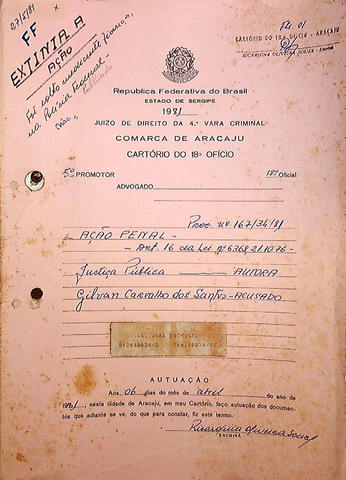 27/5/81
FF
EXTINTA A
AÇÃO
Foi solto mediante fiança,
na Polícia Federal.
Fls. 01
CARTÓRIO DO 18º OFÍCIO - ARACAJU
República Federativa do Brasil
ESTADO DE SERGIPE
1981
JUIZO DE DIREITO DA 4.ª VARA CRIMINAL
COMARCA DE ARACAJU
CARTÓRIO DO 18º OFÍCIO
5º PROMOTOR 18º Oficial
ADVOGADO
Proc. nº 167/34/81
AÇÃO PENAL -
- Art. 16 da Lei nº 6368.21.10.76 -
Justiça Pública - AUTORA
Gilvan Carvalho dos Santos - ACUSADO
AUTUAÇÃO
Aos 06 dias do mês de abril do ano de
1981, nesta cidade de Aracaju, em meu Cartório, faço autuação dos documen-
tos que adiante se vê, do que para constar, fiz este termo.
ESCRIVÃ